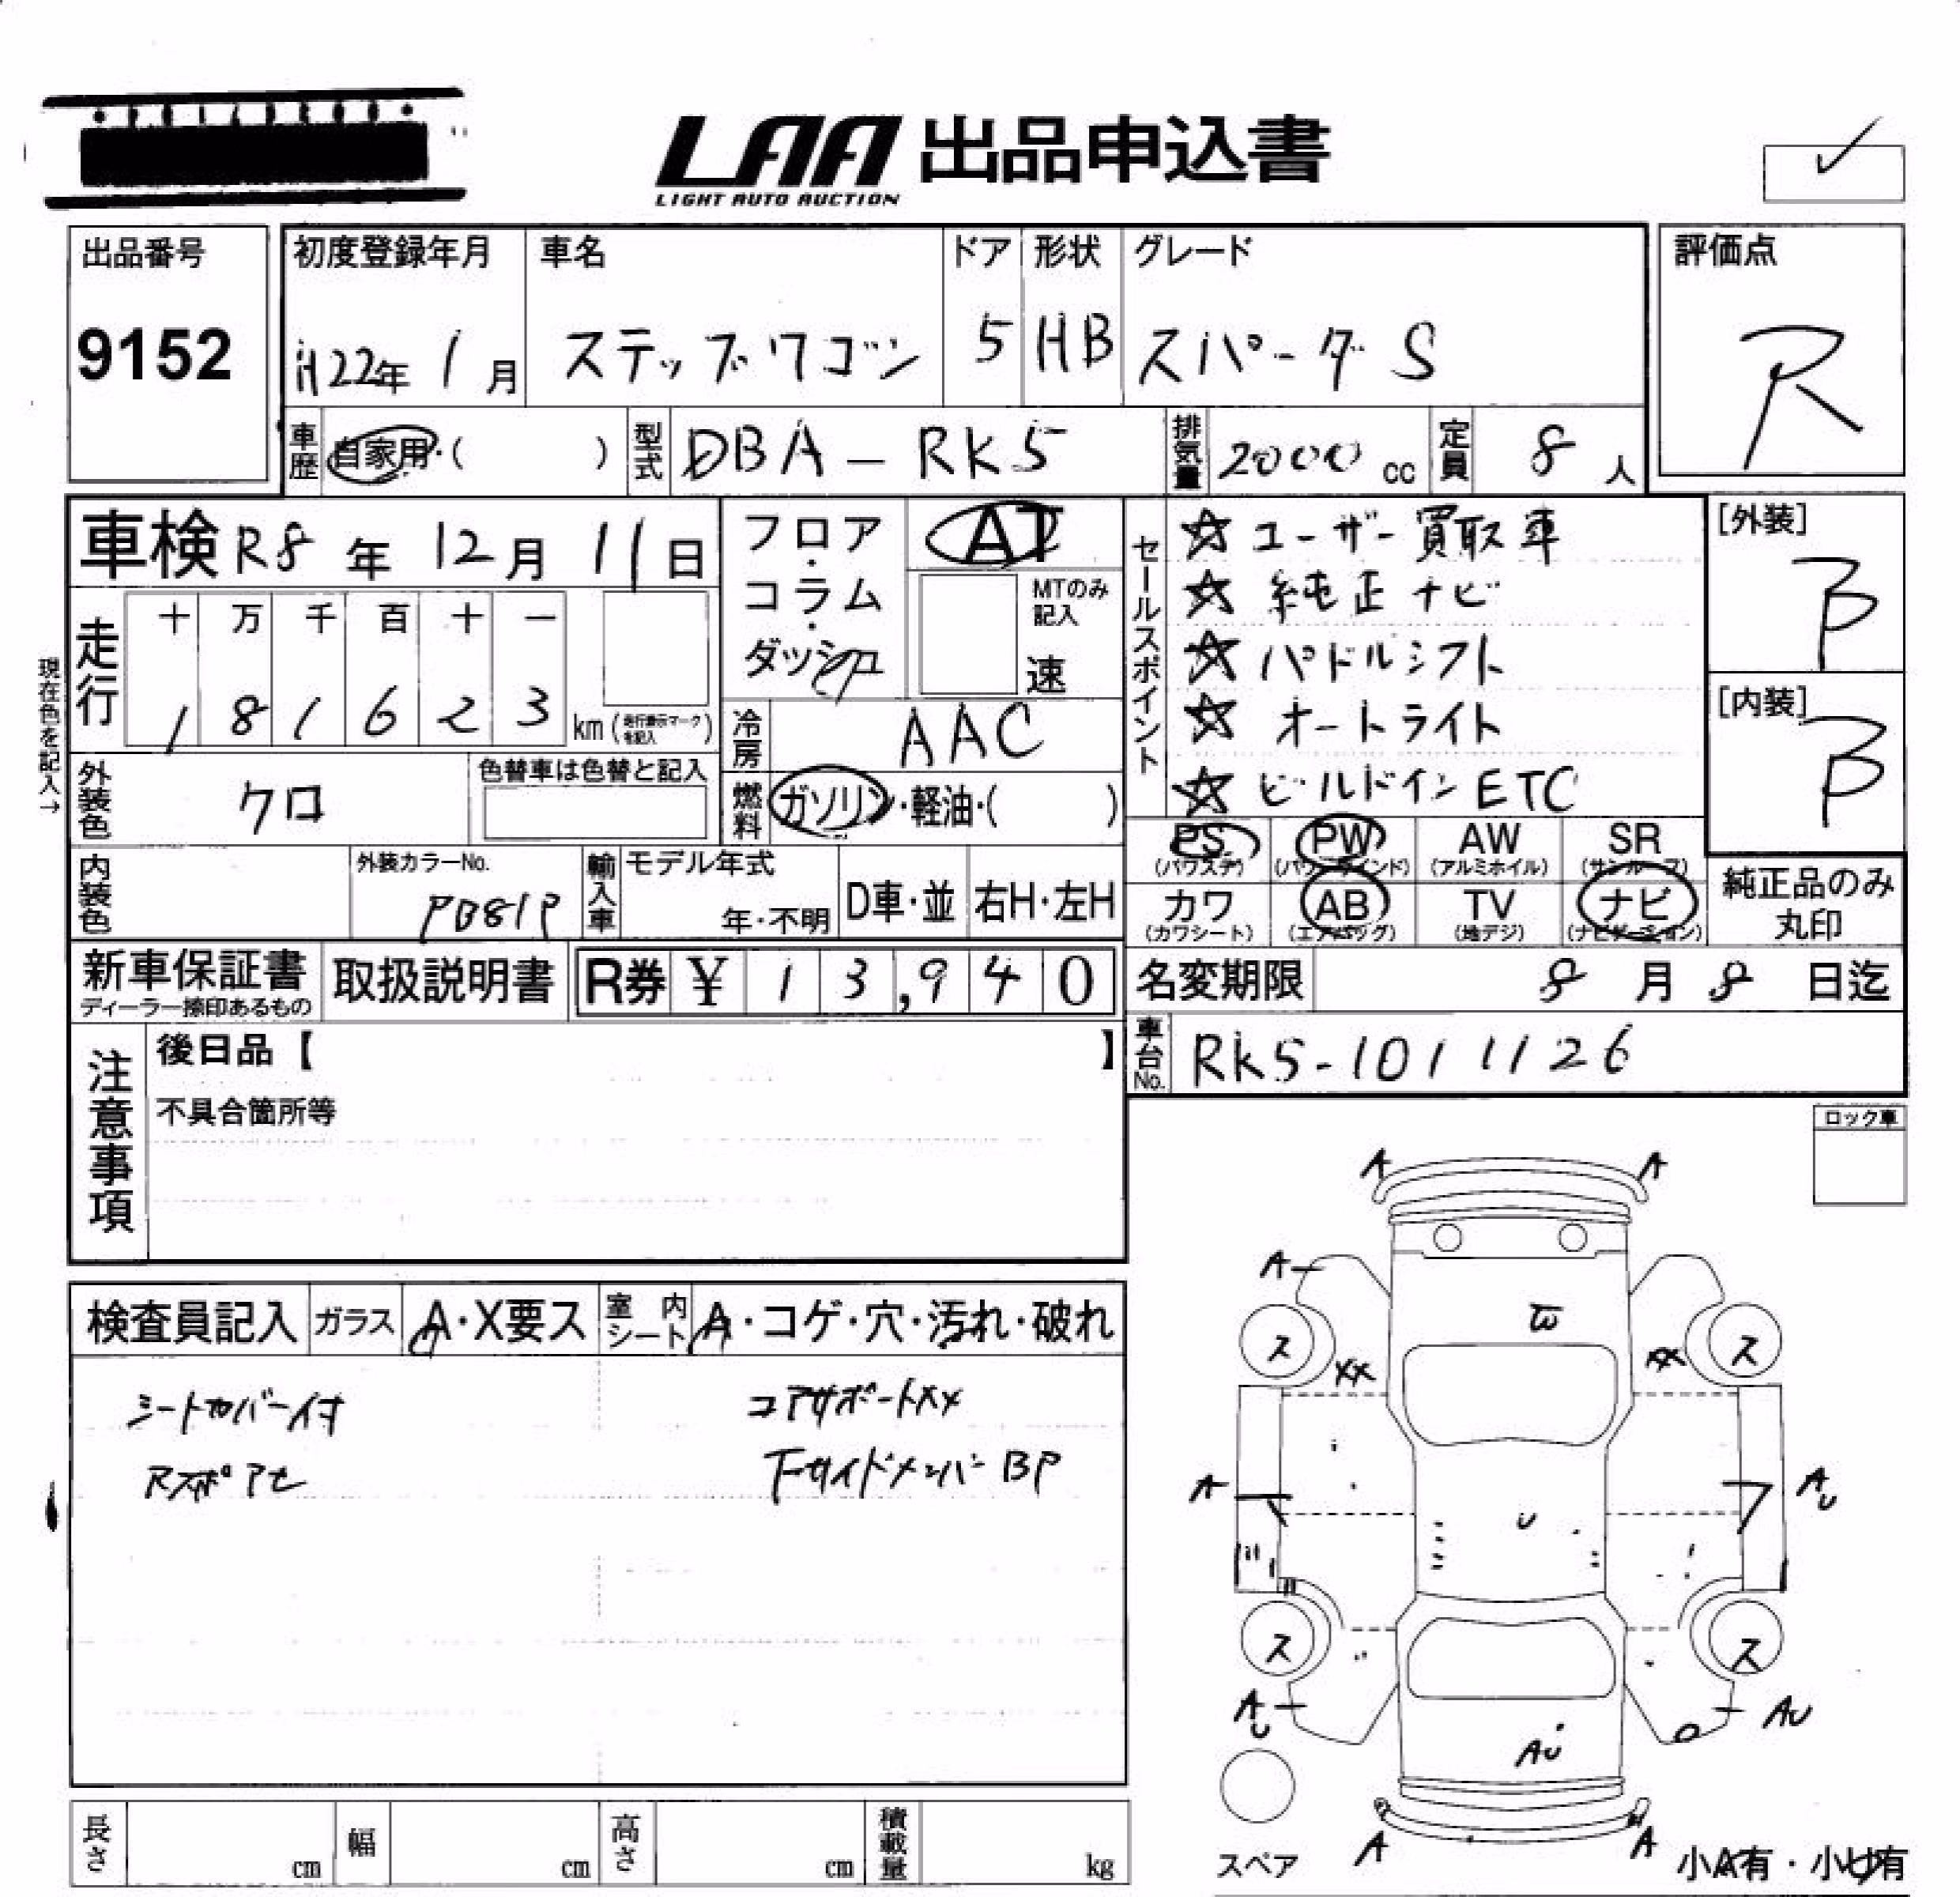 LAA 出品申込書
LIGHT AUTO AUCTION
出品番号
9152
初度登録年月
H22年 1月
車名
ステップワゴン
ドア
5
形状
HB
グレード
スパーダ S
評価点
R
車歴
自家用・( )
型式
DBA-RK5
排気量
2000 cc
定員
8 人
車検 R8年 12月 11日
走行
十 万 千 百 十 一
1 8 1 6 2 3
km (走行表示マークを記入)
現在色を記入→
外装色
クロ
色替車は色替と記入
フロア・コラム・ダッシュ
AT
MTのみ記入
速
冷房
AAC
燃料
ガソリン・軽油・( )
セールスポイント
☆ ユーザー買取車
☆ 純正ナビ
☆ パドルシフト
☆ オートライト
☆ ビルドインETC
[外装]
B
[内装]
B
内装色
外装カラーNo.
PB81P
輸入車
モデル年式
年・不明
D車・並
右H・左H
PS (パワステ)
PW (パワーウインド)
AW (アルミホイル)
SR (サンルーフ)
カワ (カワシート)
AB (エアバッグ)
TV (地デジ)
ナビ (ナビゲーション)
純正品のみ
丸印
新車保証書
ディーラー捺印あるもの
取扱説明書
R券 ¥ 13,940
名変期限
8月 8日迄
車台No.
RK5-1011126
注意事項
後日品【 】
不具合箇所等
ロック車
検査員記入
ガラス
A・X要ス
室内シート
A・コゲ・穴・汚れ・破れ
シートカバー付
コアサポートXX
Fサイドメンバー BP
A A
A
W
ス ス
XX XX
A
AU
U
ス ス
AU
AU
AU
スペア
A A
小A有・小U有
長さ cm
幅 cm
高さ cm
積載量 kg